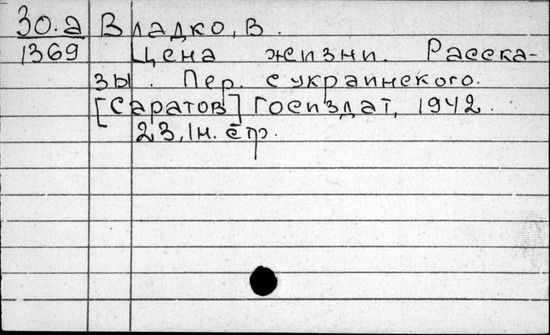 30.a Владко, В.
1369 Цена жизни. Расска-
зы. Пер. с украинского.
[Саратов] Госиздат, 1942.
23, 1 н. стр.